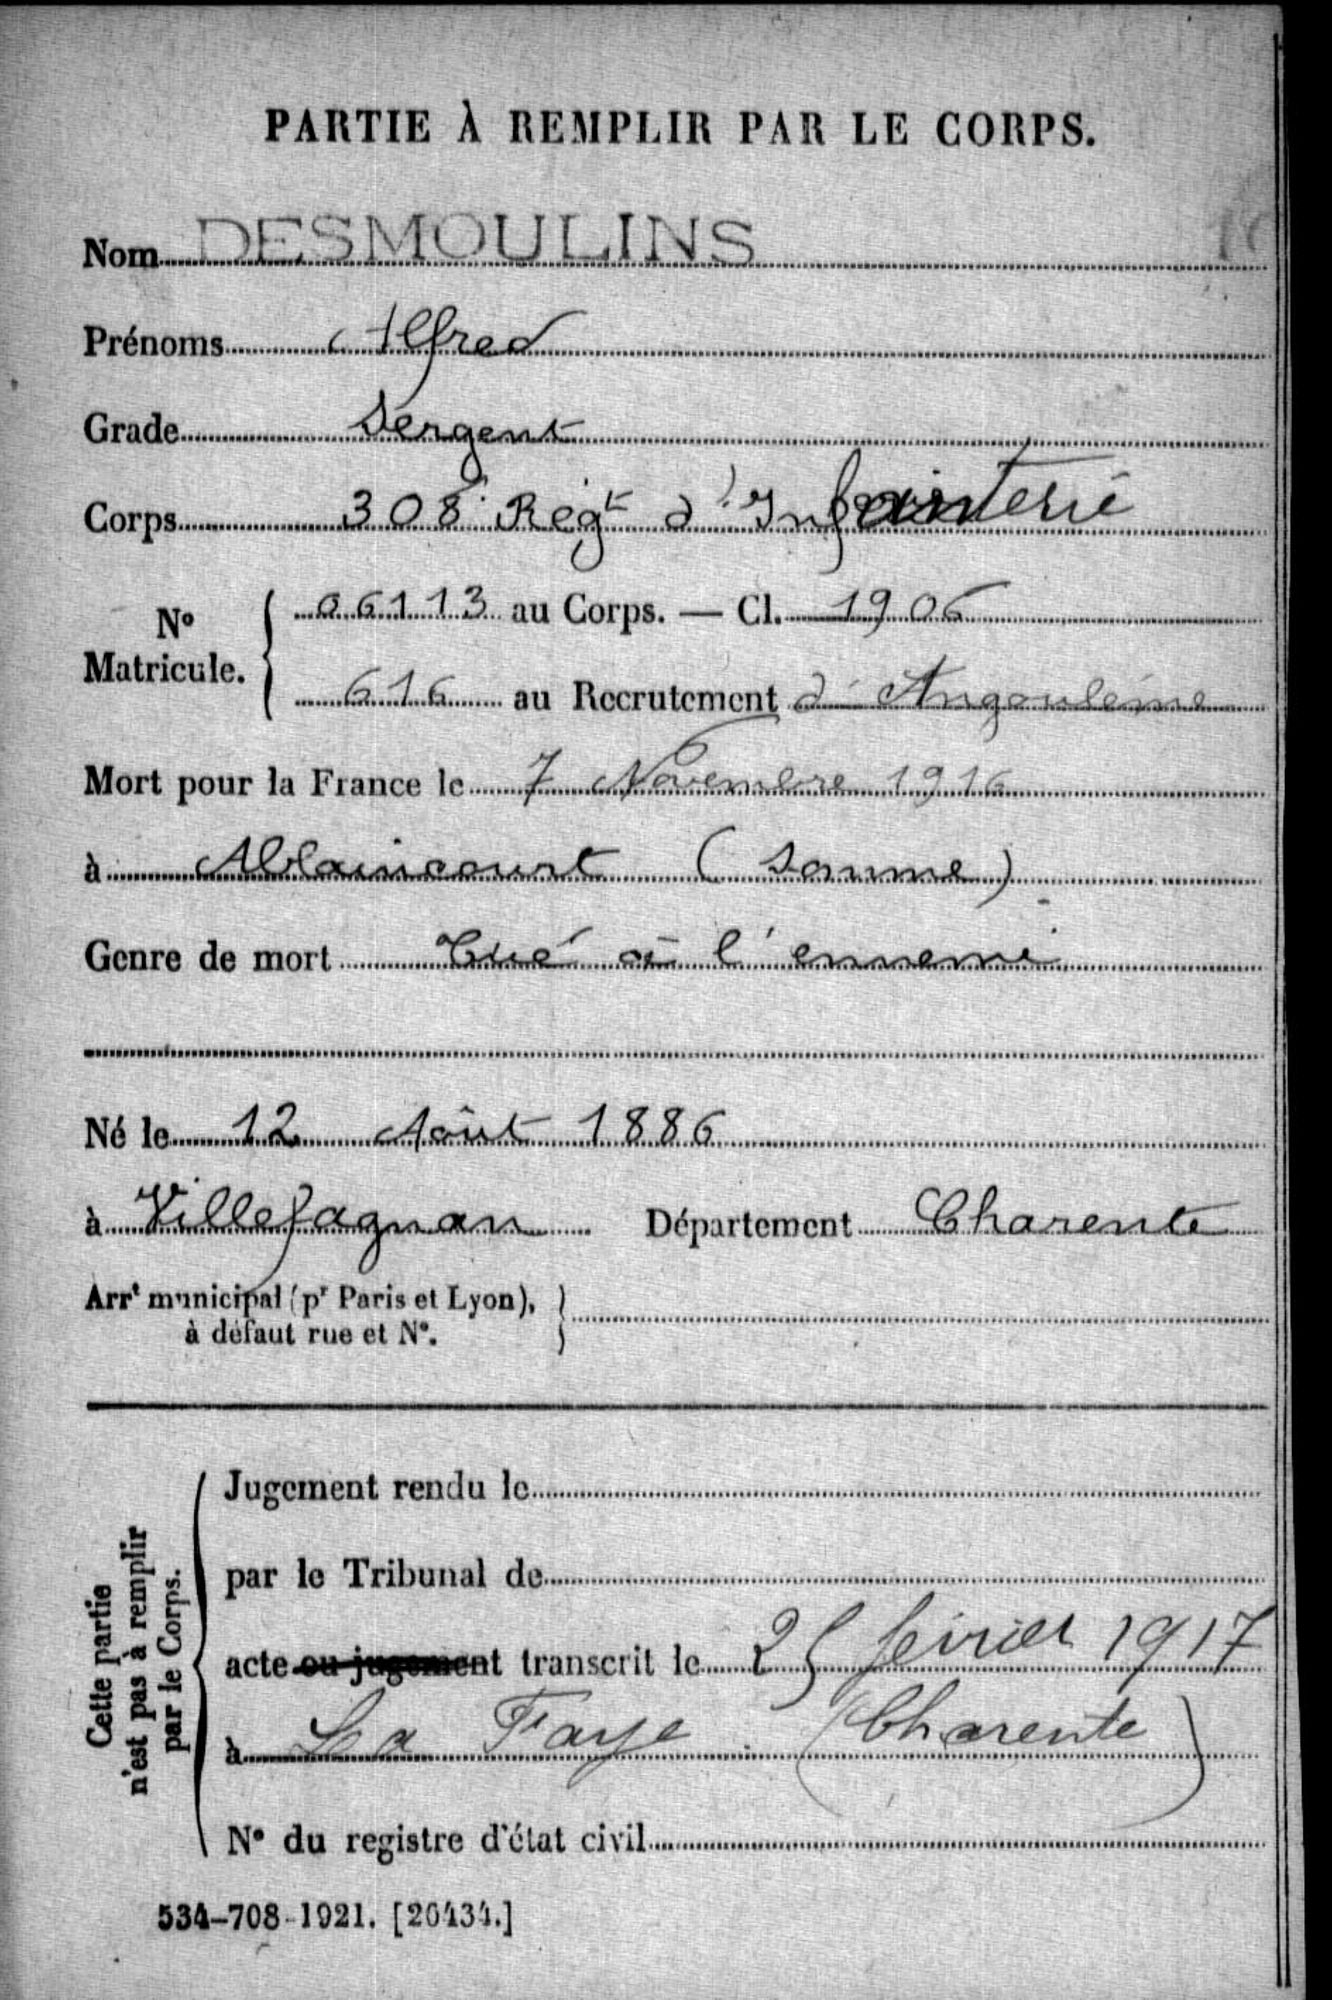 PARTIE À REMPLIR PAR LE CORPS.
Nom DESMOULINS
Prénoms Alfred
Grade Sergent
Corps 308e Régt d'Infanterie
No Matricule. 06113 au Corps. — Cl. 1906
616 au Recrutement d'Angoulême
Mort pour la France le 7 Novembre 1916
à Ablaincourt (Somme)
Genre de mort Tué à l'ennemi
Né le 12 Août 1886
à Villefagnan Département Charente
Arrt municipal (pr Paris et Lyon),
à défaut rue et No.
Cette partie
n'est pas à remplir
par le Corps.
Jugement rendu le
par le Tribunal de
acte ou jugement transcrit le 25 février 1917
à La Faye (Charente)
No du registre d'état civil
534-708-1921. [26434.]